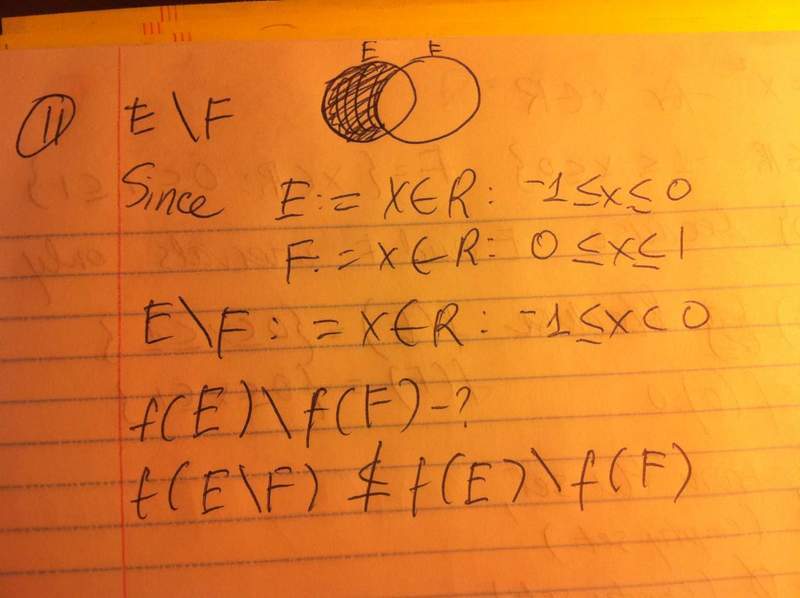 E F
11 E \ F
Since E := x ∈ R : -1 ≤ x ≤ 0
F. = x ∈ R : 0 ≤ x ≤ 1
E \ F : = x ∈ R : -1 ≤ x < 0
f(E) \ f(F) - ?
f(E \ F) ⊈ f(E) \ f(F)